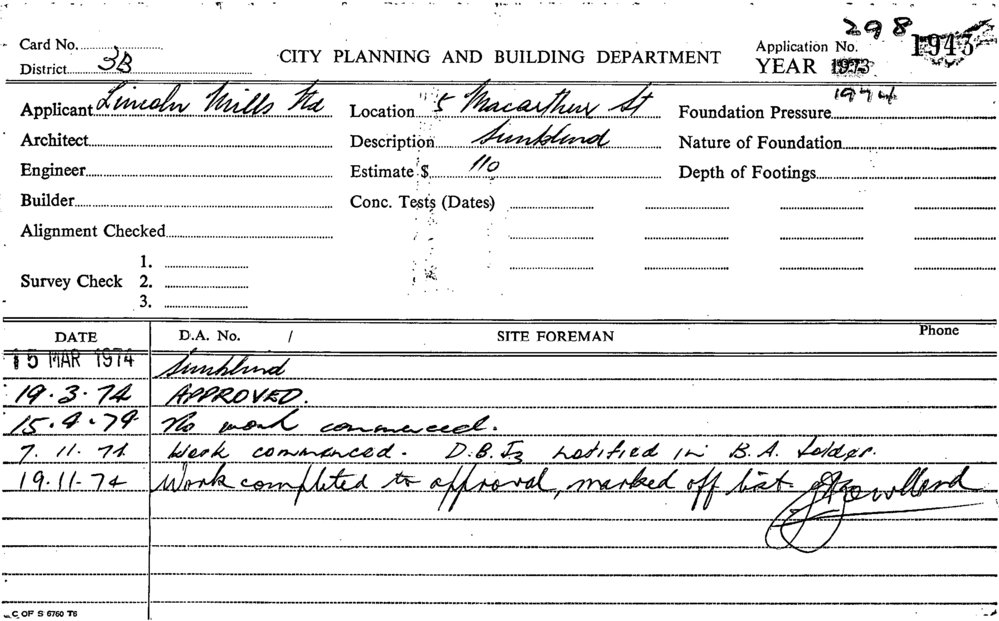 298
Card No. Application No. 1943
CITY PLANNING AND BUILDING DEPARTMENT
District 3B YEAR 1973
1974
Applicant Lincoln Mills Ltd Location 5 Macarthur St Foundation Pressure
Architect Description Sunblind Nature of Foundation
Engineer Estimate $ 110 Depth of Footings
Builder Conc. Tests (Dates)
Alignment Checked
1.
Survey Check 2.
3.
DATE D.A. No. / SITE FOREMAN Phone
15 MAR 1974 Sunblind
19.3.74 APPROVED.
15.4.74 No work commenced.
7.11.74 Work commenced. D.B.I notified in B.A. folder.
19.11.74 Work completed to approval, marked off list.
C OF S 6760 T6